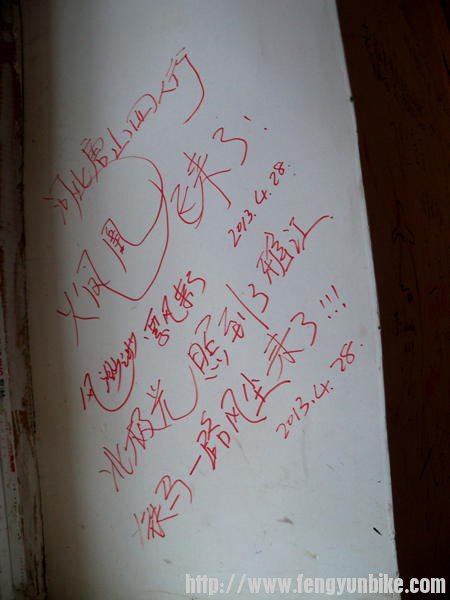 河北唐山四人行
火凤凰飞来了!
2013.4.28.
风 雪儿来了
北极光照到了雅江
一路风尘来了!!!
2013.4.28.
http://www.fengyunbike.com